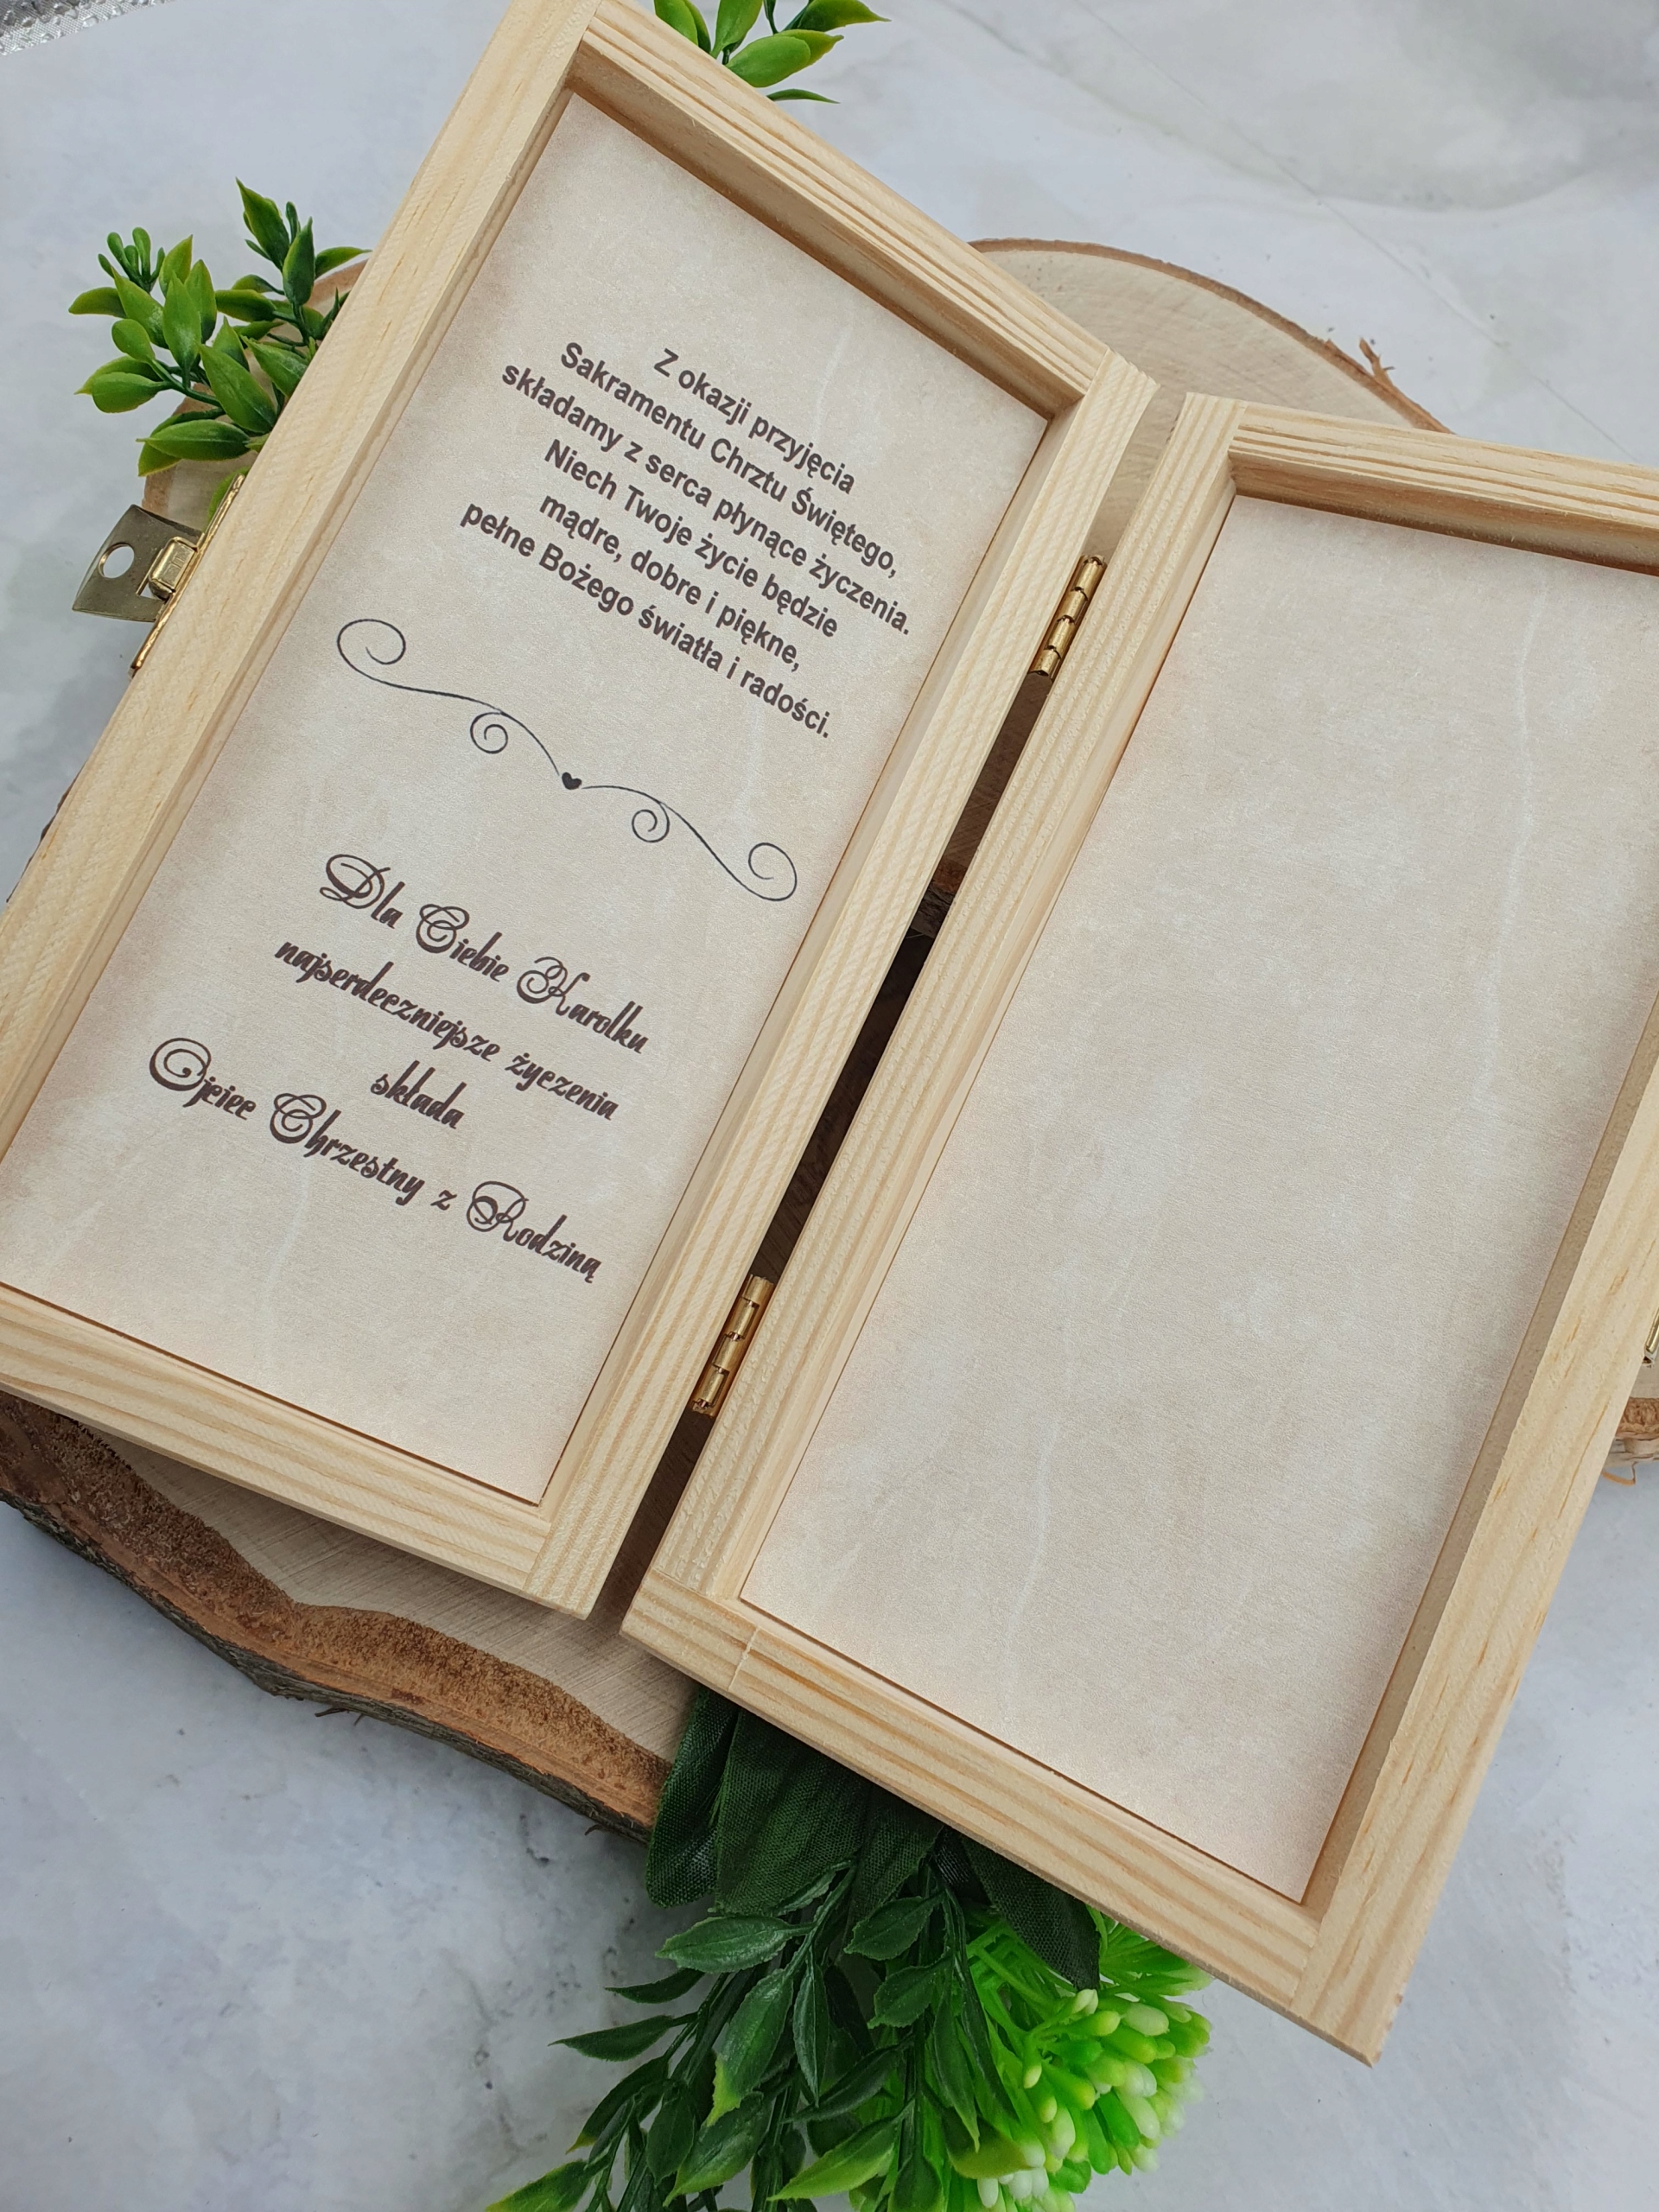 Z okazji przyjęcia
Sakramentu Chrztu Świętego,
składamy z serca płynące życzenia.
Niech Twoje życie będzie
mądre, dobre i piękne,
pełne Bożego światła i radości.
Dla Ciebie Karolku
najserdeczniejsze życzenia
składa
Ojciec Chrzestny z Rodziną